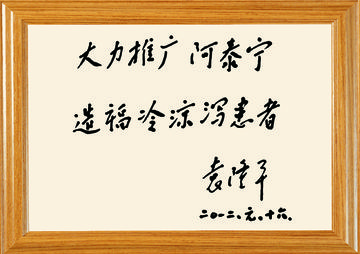 大力推广阿泰宁
造福冷凉泻患者
袁隆平
二〇一二、元、十六、